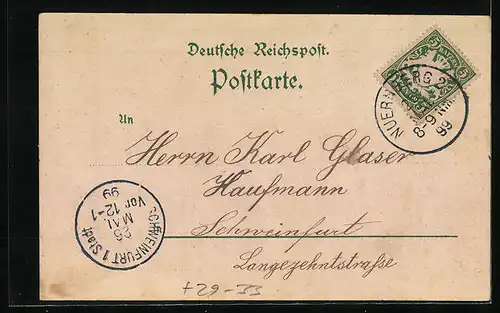 Deutsche Reichspost.
Postkarte.
NUERNBERG 2
8-9 Nm.
99
An
Herrn Karl Glaser
Kaufmann
Schweinfurt
Langezehntstraße
SCHWEINFURT 1 Stadt
26
MAI
Vor 12-1
99
+29-33